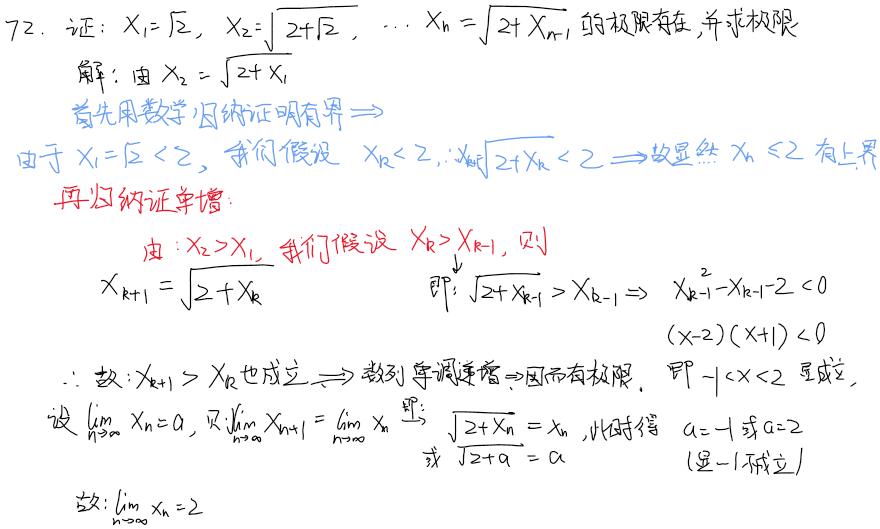 72. 证: X₁=√2, X₂=√(2+√2), ⋯ Xₙ=√(2+Xₙ₋₁) 的极限存在,并求极限
解: 由 X₂=√(2+X₁)
首先用数学归纳证明有界⟹
由于 X₁=√2<2, 我们假设 X_k<2, ∴X_{k+1}=√(2+X_k)<2 ⟹故显然 Xₙ≤2 有上界
再归纳证单增:
由: X₂>X₁, 我们假设 X_k>X_{k-1}, 则
X_{k+1}=√(2+X_k) 即: √(2+X_{k-1})>X_{k-1} ⟹ X_{k-1}²-X_{k-1}-2<0
(x-2)(x+1)<0
∴ 故: X_{k+1}>X_k 也成立 ⟹ 数列单调递增⇒因而有极限. 即 -1<x<2 显成立,
设 lim_{n→∞} Xₙ=a, 则: lim_{n→∞} Xₙ₊₁=lim_{n→∞} Xₙ 即:→ √(2+Xₙ)=xₙ, 此时得 a=-1或a=2
或 √(2+a)=a (显-1不成立)
故: lim_{n→∞} Xₙ=2